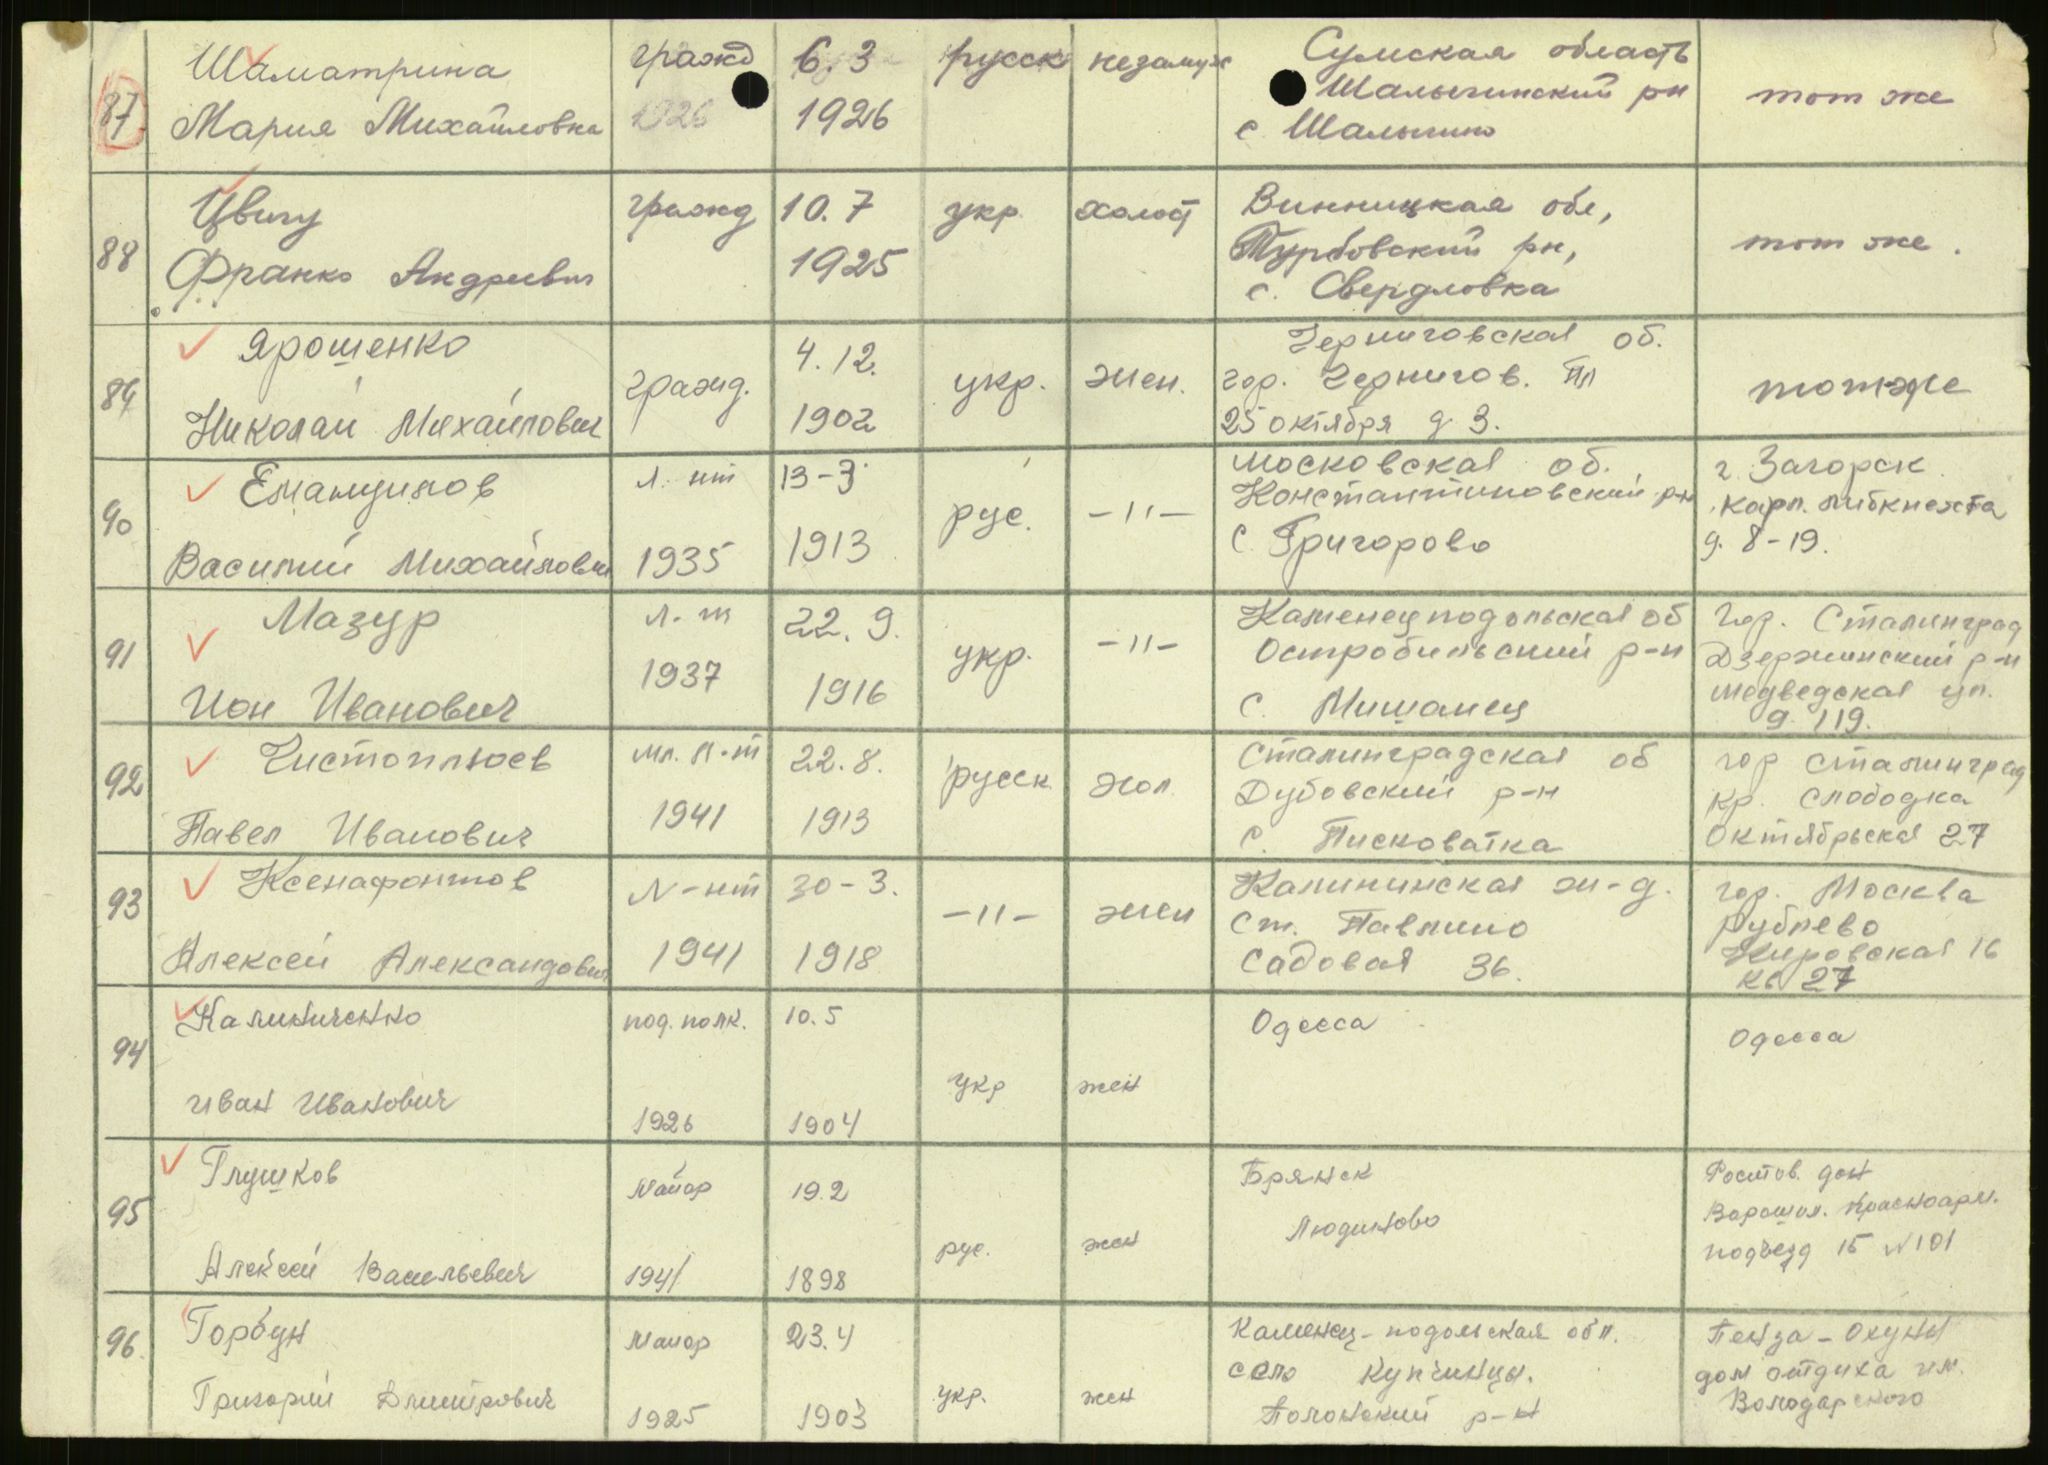 87 Шаматрина гражд 6.3 русск незамуж Сумская область
Шалыгинский рн тот же
Мария Михайловна 1926 1926 с. Шалыгино
88 Цвигу гражд 10.7 укр холост Винницкая обл,
Турбовский рн, тот же.
Франко Андреевич 1925 с. Свердловка
89 Ярошенко гражд. 4.12. укр. жен. Черниговская об.
гор. Чернигов. Пл тот-же
Николай Михайлович 1902 25 октября д 3.
90 Емамушлов Л-нт 13-3 рус. -"- московская об. г. Загорск
Константиновский р-н Карл. либкнехта
Василий Михайлович 1935 1913 с. Григорово д. 8-19.
91 Мазур Л-т 22.9. укр. -"- Каменецподольская об Гор. Сталинград
Остробильский р-н Дзержинский р-н
1937 1916 медведская ул.
Ион Иванович с. Мишанец д. 119.
92 Чистоплюев мл. л-т 22.8. русск хол. Сталинградская об гор Сталинград
Дубовский р-н кр. слободка
Павел Иванович 1941 1913 с. Писковатка Октябрьская 27
93 Ксенафонтов Л-нт 30-3. -"- жен Калининская ж-д. гор. Москва
ст. Павлино Рублево
Алексей Александович 1941 1918 Садовая 36. Кировская 16
кв 27
94 Калиниченко под. полк. 10.5 укр жен Одесса Одесса
Иван Иванович 1926 1904
95 Глушков Майор 19.2 рус. жен Брянск Ростов. дон
Людиново Ворошил. Красноарм.
подъезд 15 №101
Алексей Васильевич 1941 1898
96. Горбун Майор 23.4 укр. жен Каменец-подольская обл. Пенза-Ахуны
село Купчинцы. дом отдыха им.
Григорий Дмитрович 1925 1903 Полонский р-н Володарского